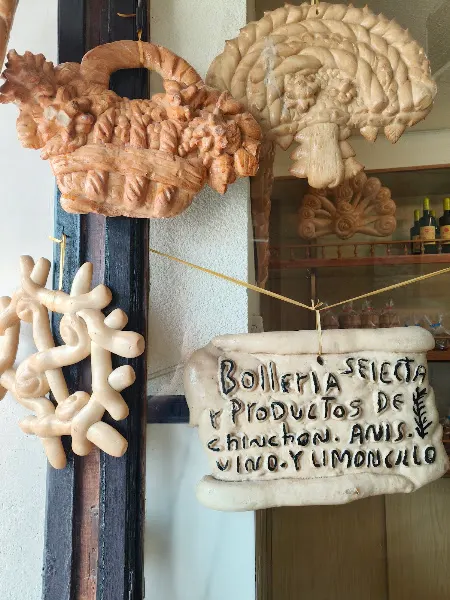 BollerIA SElECTA
Y PRODUCTOS DE
ChINChON. ANIS.
VINO. Y LIMONCILLO